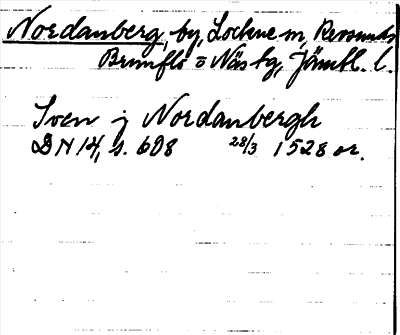 Nordanberg, by, Lockne sn, Revsunds,
Brunflo o Näs tg, Jämtl. l.
Sven j Nordanbergh
DN 14, s. 608 28/3 1528 or.